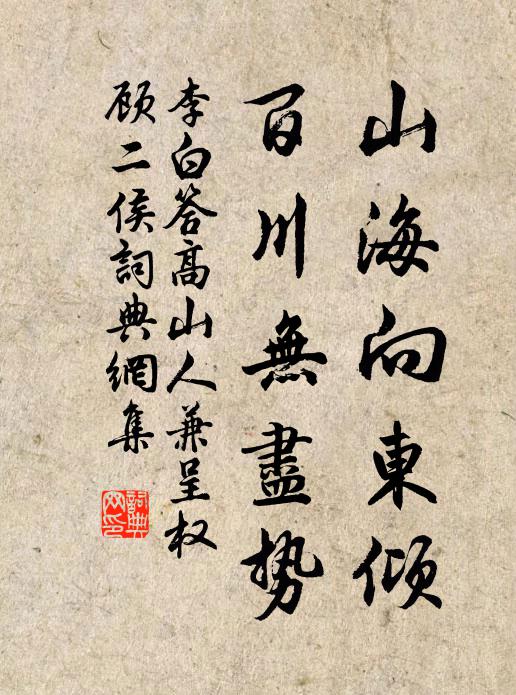 山海向東傾
百川無盡勢
李白答高山人兼呈权
顾二侯詞典網集
詞典
网印